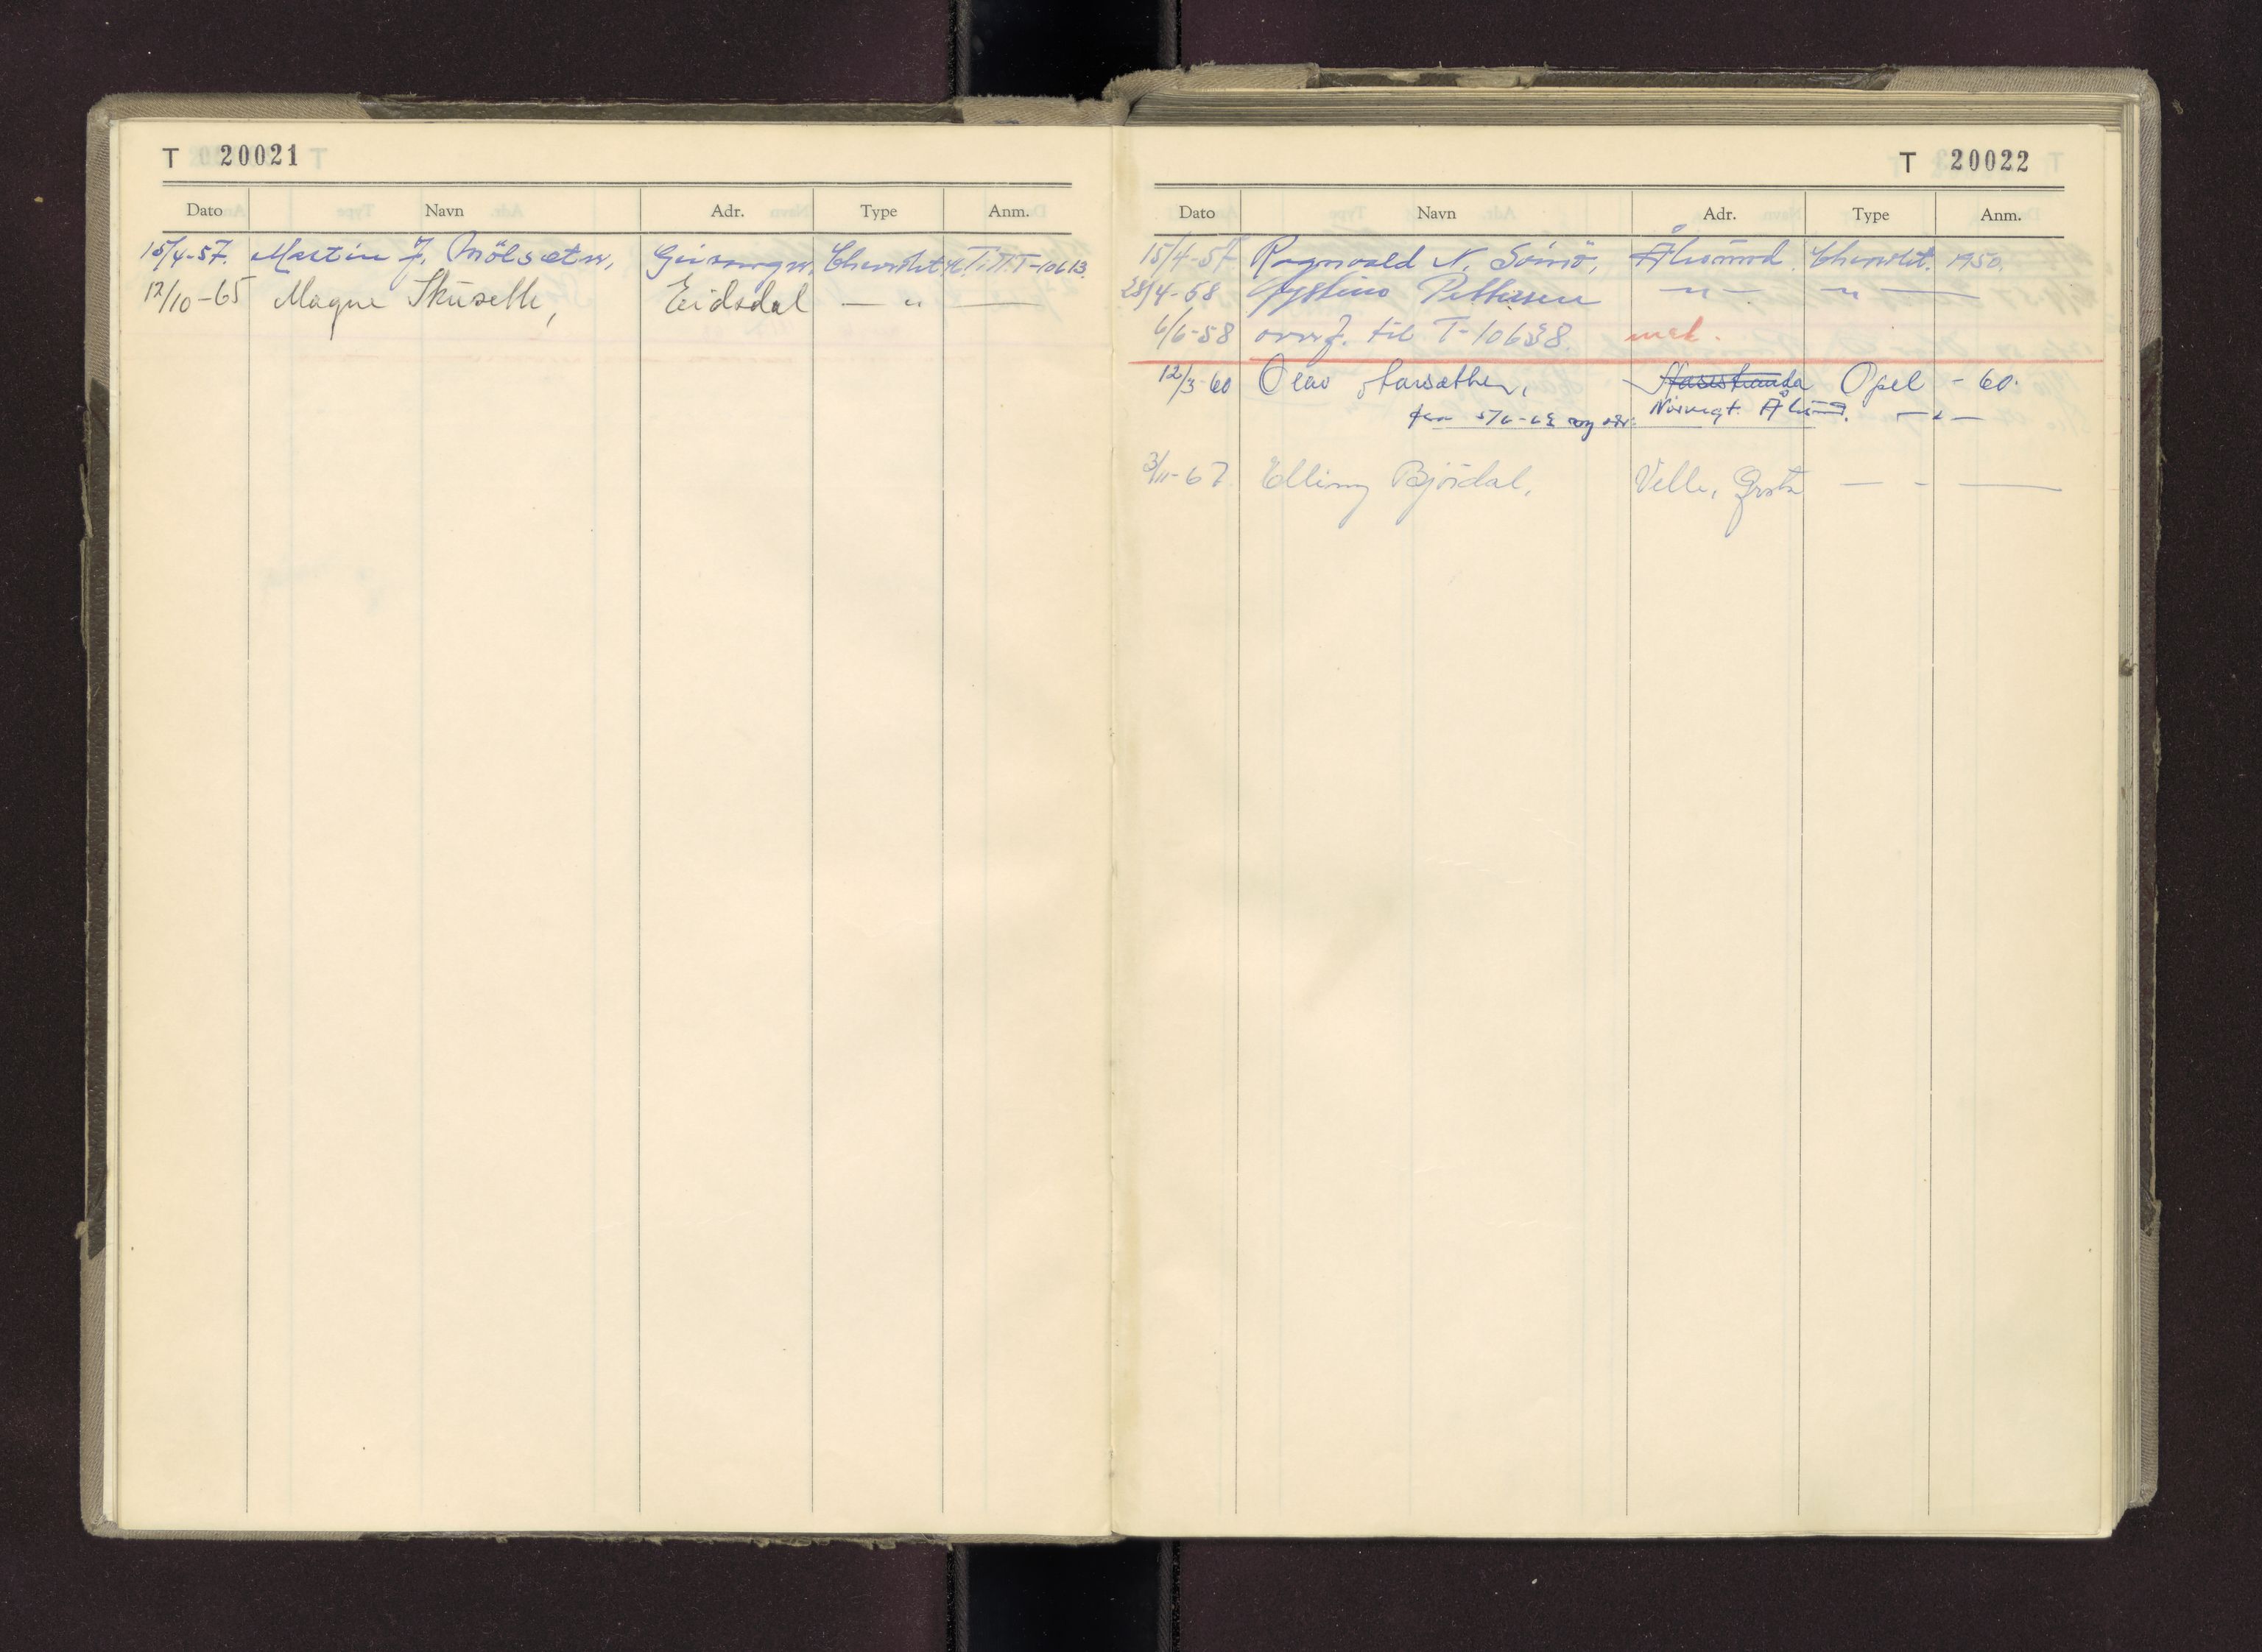 T 20021
Dato Navn Adr. Type Anm.
15/4-57. Martin J. Mölsæter, Geiranger, Chevrolet T-10613.
12/10-65 Magne Skuseth, Eidsdal — " —
T 20022
Dato Navn Adr. Type Anm.
15/4-57 Ragnvald N. Sömö, Ålesund. Chevrolet. 1950.
28/4-58 Øystein Pettersen — " — — " —
6/6-58 overf. til T-10638. mrk.
12/3-60 Olav Aarsæther, Opel - 60.
fra 5/6-62 ny adr: Nörvegt. Ålesund. — " —
3/11-67 Elling Bjørdal, Velle, Ørsta — " —